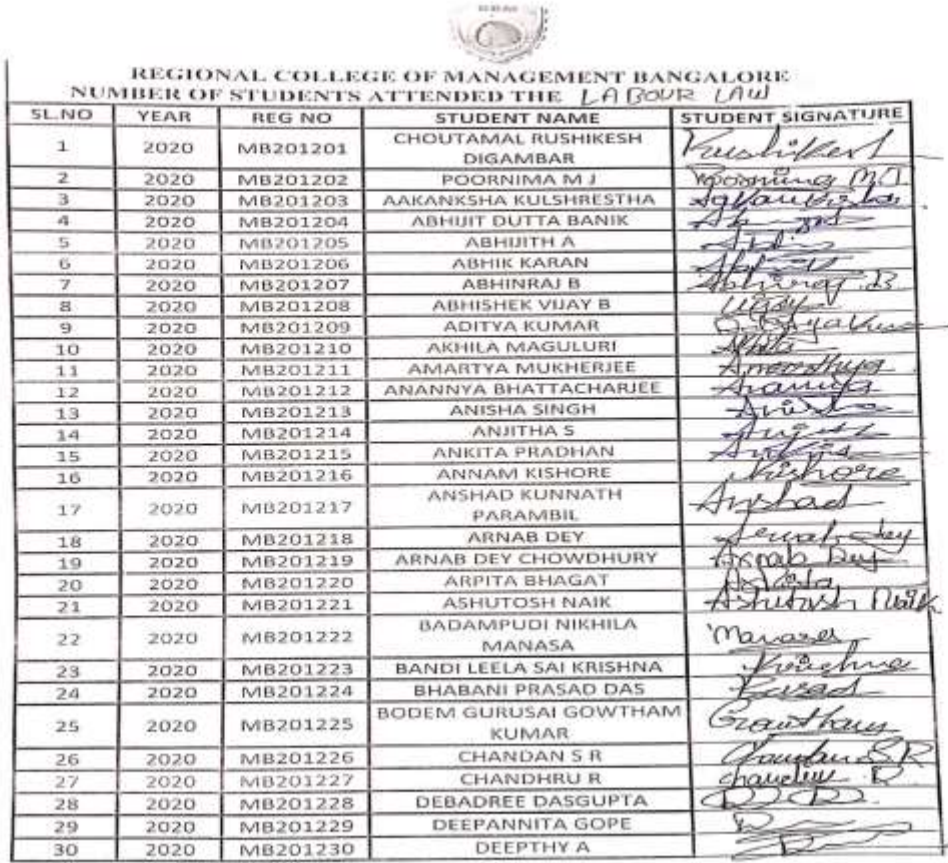 REGIONAL COLLEGE OF MANAGEMENT BANGALORE
NUMBER OF STUDENTS ATTENDED THE LABOUR LAW
SL.NO YEAR REG NO STUDENT NAME STUDENT SIGNATURE
1 2020 MB201201 CHOUTAMAL RUSHIKESH Rushikesh
DIGAMBAR
2 2020 MB201202 POORNIMA M J Poornima M.J
3 2020 MB201203 AAKANKSHA KULSHRESTHA
4 2020 MB201204 ABHIJIT DUTTA BANIK
5 2020 MB201205 ABHIJITH A
6 2020 MB201206 ABHIK KARAN
7 2020 MB201207 ABHINRAJ B Abhinraj .B
8 2020 MB201208 ABHISHEK VIJAY B Vijay
9 2020 MB201209 ADITYA KUMAR
10 2020 MB201210 AKHILA MAGULURI
11 2020 MB201211 AMARTYA MUKHERJEE
12 2020 MB201212 ANANNYA BHATTACHARJEE Anannya
13 2020 MB201213 ANISHA SINGH
14 2020 MB201214 ANJITHA S
15 2020 MB201215 ANKITA PRADHAN
16 2020 MB201216 ANNAM KISHORE Kishore
17 2020 MB201217 ANSHAD KUNNATH Anshad
PARAMBIL
18 2020 MB201218 ARNAB DEY
19 2020 MB201219 ARNAB DEY CHOWDHURY Arnab Dey
20 2020 MB201220 ARPITA BHAGAT Arpita
21 2020 MB201221 ASHUTOSH NAIK Ashutosh Naik
22 2020 MB201222 BADAMPUDI NIKHILA Manasa
MANASA
23 2020 MB201223 BANDI LEELA SAI KRISHNA Krishna
24 2020 MB201224 BHABANI PRASAD DAS
25 2020 MB201225 BODEM GURUSAI GOWTHAM Gowtham
KUMAR
26 2020 MB201226 CHANDAN S R Chandan S R
27 2020 MB201227 CHANDHRU R R
28 2020 MB201228 DEBADREE DASGUPTA
29 2020 MB201229 DEEPANNITA GOPE
30 2020 MB201230 DEEPTHY A